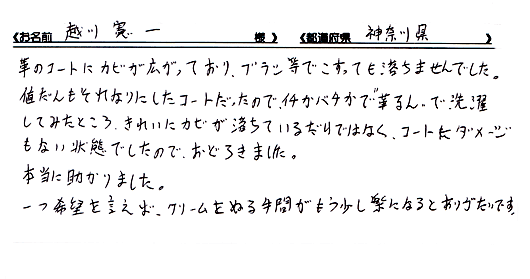 《お名前 越川 寛一 様》 《都道府県 神奈川県 》
革のコートにカビが広がっており、ブラシ等でこすっても落ちませんでした。
値だんもそれなりにしたコートだったので、イチかバチかで"革るん"で洗濯
してみたところ、きれいにカビが落ちているだけではなく、コートにダメージ
もない状態でしたので、おどろきました。
本当に助かりました。
一つ希望を言えば、クリームをぬる手間がもう少し楽になるとありがたいです